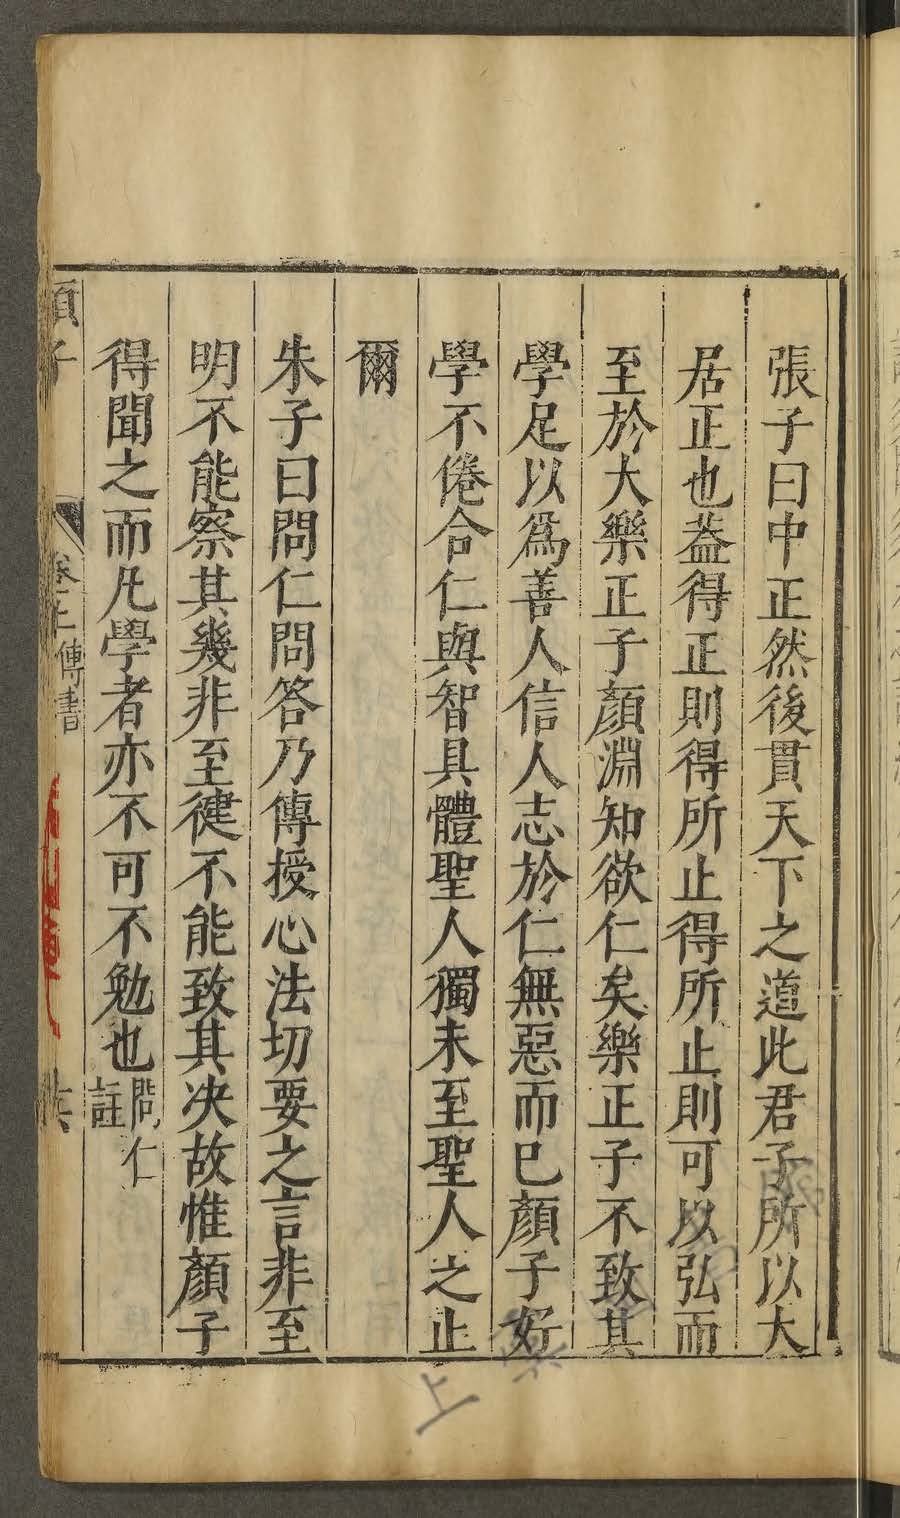 張子曰中正然後貫天下之道此君子所以大
居正也葢得正則得所止得所止則可以弘而
至於大樂正子顏淵知欲仁矣樂正子不致其
學足以爲善人信人志於仁無惡而已顏子好
學不倦合仁與智具體聖人獨未至聖人之止
爾
朱子曰問仁問答乃傳授心法切要之言非至
明不能察其幾非至徤不能致其决故惟顏子
得聞之而凡學者亦不可不勉也問仁註
顏子
卷上傳書